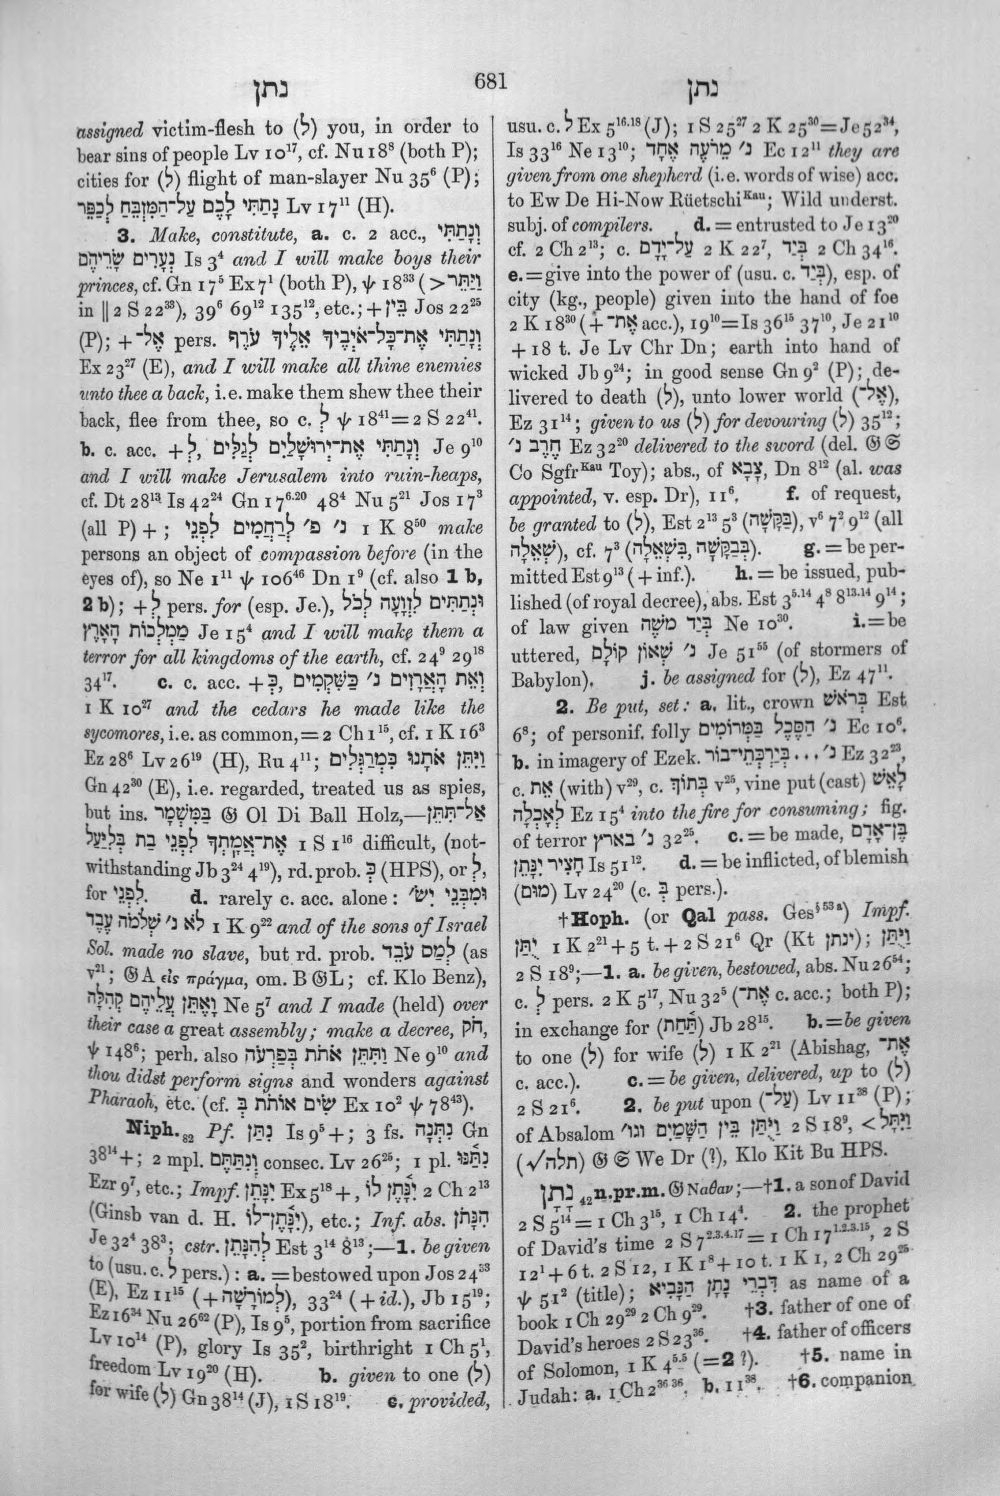 נתן
681
נתן
assigned victim-flesh to (לְ) you, in order to
bear sins of people Lv 10¹⁷, cf. Nu 18⁸ (both P);
cities for (לְ) flight of man-slayer Nu 35⁶ (P);
נָתַתִּי לָכֶם עַל־הַמִּזְבֵּחַ לְכַפֵּר Lv 17¹¹ (H).
3. Make, constitute, a. c. 2 acc., וְנָתַתִּי
נְעָרִים שָׂרֵיהֶם Is 3⁴ and I will make boys their
princes, cf. Gn 17⁵ Ex 7¹ (both P), ψ 18³³ (> וַיַּתֵּר
in ‖ 2 S 22³³), 39⁶ 69¹² 135¹², etc.; + בֵּין Jos 22²⁵
(P); + אֶל־ pers. וְנָתַתִּי אֶת־כָּל־אֹיְבֶיךָ אֵלֶיךָ עֹרֶף
Ex 23²⁷ (E), and I will make all thine enemies
unto thee a back, i.e. make them shew thee their
back, flee from thee, so c. לְ ψ 18⁴¹ = 2 S 22⁴¹.
b. c. acc. + לְ, וְנָתַתִּי אֶת־יְרוּשָׁלַיִם לְגַלִּים Je 9¹⁰
and I will make Jerusalem into ruin-heaps,
cf. Dt 28¹³ Is 42²⁴ Gn 17⁶·²⁰ 48⁴ Nu 5²¹ Jos 17³
(all P) + ; נ׳ פ׳ לְרַחֲמִים לִפְנֵי 1 K 8⁵⁰ make
persons an object of compassion before (in the
eyes of), so Ne 1¹¹ ψ 106⁴⁶ Dn 1⁹ (cf. also 1 b,
2 b); + לְ pers. for (esp. Je.), וּנְתַתִּים לְזַוֲעָה לְכֹל
מַמְלְכוֹת הָאָרֶץ Je 15⁴ and I will make them a
terror for all kingdoms of the earth, cf. 24⁹ 29¹⁸
34¹⁷. c. c. acc. + כְּ, וְאֵת הָאֲרָזִים נ׳ כַּשִּׁקְמִים
1 K 10²⁷ and the cedars he made like the
sycomores, i.e. as common, = 2 Ch 1¹⁵, cf. 1 K 16³
Ez 28⁶ Lv 26¹⁹ (H), Ru 4¹¹; וַיִּתֵּן אֹתָנוּ כִּמְרַגְּלִים
Gn 42³⁰ (E), i.e. regarded, treated us as spies,
but ins. בַּמִּשְׁמָר 𝔊 Ol Di Ball Holz,—אַל־תִּתֵּן
אֶת־אֲמָתְךָ לִפְנֵי בַת בְּלִיָּעַל 1 S 1¹⁶ difficult, (not-
withstanding Jb 3²⁴ 4¹⁹), rd. prob. כְּ (HPS), or לְ,
for לִפְנֵי. d. rarely c. acc. alone: וּמִבְּנֵי יִשׂ׳
לֹא נ׳ שְׁלֹמֹה עָבֶד 1 K 9²² and of the sons of Israel
Sol. made no slave, but rd. prob. לְמַס עֹבֵד (as
v²¹; 𝔊A εἰς πράγμα, om. B 𝔊L; cf. Klo Benz),
וָאֶתֵּן עֲלֵיהֶם קְהִלָּה Ne 5⁷ and I made (held) over
their case a great assembly; make a decree, חֹק,
ψ 148⁶; perh. also וַתִּתֵּן אֹתֹת בְּפַרְעֹה Ne 9¹⁰ and
thou didst perform signs and wonders against
Pharaoh, etc. (cf. שִׂים אוֹתֹת בְּ Ex 10² ψ 78⁴³).
Niph.₈₂ Pf. נִתַּן Is 9⁵ +; 3 fs. נִתְּנָה Gn
38¹⁴ +; 2 mpl. וְנִתַּתֶּם consec. Lv 26²⁵; 1 pl. נִתַּנּוּ
Ezr 9⁷, etc.; Impf. יִנָּתֵן Ex 5¹⁸ +, יִנָּתֶן לוֹ 2 Ch 2¹³
(Ginsb van d. H. יִנָּתֶן־לוֹ), etc.; Inf. abs. הִנָּתֹן
Je 32⁴ 38³; cstr. לְהִנָּתֵן Est 3¹⁴ 8¹³;—1. be given
to (usu. c. לְ pers.): a. = bestowed upon Jos 24³³
(E), Ez 11¹⁵ (+ לְמוֹרָשָׁה), 33²⁴ (+ id.), Jb 15¹⁹;
Ez 16³⁴ Nu 26⁶² (P), Is 9⁵, portion from sacrifice
Lv 10¹⁴ (P), glory Is 35², birthright 1 Ch 5¹,
freedom Lv 19²⁰ (H). b. given to one (לְ)
for wife (לְ) Gn 38¹⁴ (J), 1 S 18¹⁹. c. provided,
usu. c. לְ Ex 5¹⁶·¹⁸ (J); 1 S 25²⁷ 2 K 25³⁰ = Je 52³⁴,
Is 33¹⁶ Ne 13¹⁰; נ׳ מֵרֹעֶה אֶחָד Ec 12¹¹ they are
given from one shepherd (i.e. words of wise) acc.
to Ew De Hi-Now Rüetschi ᴷᵃᵘ; Wild underst.
subj. of compilers. d. = entrusted to Je 13²⁰
cf. 2 Ch 2¹³; c. עַל־יָדָם 2 K 22⁷, בְּיַד 2 Ch 34¹⁶.
e. = give into the power of (usu. c. בְּיַד), esp. of
city (kg., people) given into the hand of foe
2 K 18³⁰ (+ אֶת־ acc.), 19¹⁰ = Is 36¹⁵ 37¹⁰, Je 21¹⁰
+ 18 t. Je Lv Chr Dn; earth into hand of
wicked Jb 9²⁴; in good sense Gn 9² (P); de-
livered to death (לְ), unto lower world (אֶל־),
Ez 31¹⁴; given to us (לְ) for devouring (לְ) 35¹²;
חֶרֶב נ׳ Ez 32²⁰ delivered to the sword (del. 𝔊 𝔖
Co Sgfr ᴷᵃᵘ Toy); abs., of צָבָא, Dn 8¹² (al. was
appointed, v. esp. Dr), 11⁶. f. of request,
be granted to (לְ), Est 2¹³ 5³ (בַּקָּשָׁה), v⁶ 7² 9¹² (all
שְׁאֵלָה), cf. 7³ (בְּבַקָּשָׁה, בִּשְׁאֵלָה). g. = be per-
mitted Est 9¹³ (+ inf.). h. = be issued, pub-
lished (of royal decree), abs. Est 3⁵·¹⁴ 4⁸ 8¹³·¹⁴ 9¹⁴;
of law given בְּיַד משֶׁה Ne 10³⁰. i. = be
uttered, נ׳ שְׁאוֹן קוֹלָם Je 51⁵⁵ (of stormers of
Babylon). j. be assigned for (לְ), Ez 47¹¹.
2. Be put, set: a. lit., crown בְּרֹאשׁ Est
6⁸; of personif. folly נ׳ הַסֶּכֶל בַּמְּרוֹמִים Ec 10⁶.
b. in imagery of Ezek. נ׳ ... בְּיַרְכְּתֵי־בוֹר Ez 32²³,
c. אֵת (with) v²⁹, c. בְּתוֹךְ v²⁵, vine put (cast) לָאֵשׁ
לְאָכְלָה Ez 15⁴ into the fire for consuming; fig.
of terror נ׳ בארץ 32²⁵. c. = be made, בֶּן־אָדָם
חָצִיר יִנָּתֵן Is 51¹². d. = be inflicted, of blemish
(מוּם) Lv 24²⁰ (c. בְּ pers.).
† Hoph. (or Qal pass. Ges§ ⁵³ ᵃ) Impf.
יֻתַּן 1 K 2²¹ + 5 t. + 2 S 21⁶ Qr (Kt ינתן); וַיֻּתַּן
2 S 18⁹;—1. a. be given, bestowed, abs. Nu 26⁵⁴;
c. לְ pers. 2 K 5¹⁷, Nu 32⁵ (אֶת־ c. acc.; both P);
in exchange for (תַּחַת) Jb 28¹⁵. b. = be given
to one (לְ) for wife (לְ) 1 K 2²¹ (Abishag, אֶת־
c. acc.). c. = be given, delivered, up to (לְ)
2 S 21⁶. 2. be put upon (עַל־) Lv 11³⁸ (P);
of Absalom וַיֻּתַּן בֵּין הַשָּׁמַיִם וגו׳ 2 S 18⁹, < וַיִּתָּל
(√תלה) 𝔊 𝔖 We Dr (?), Klo Kit Bu HPS.
נָתָן ₄₂ n.pr.m. 𝔊 Ναθαν;—†1. a son of David
2 S 5¹⁴ = 1 Ch 3¹⁵, 1 Ch 14⁴. 2. the prophet
of David's time 2 S 7²·³·⁴·¹⁷ = 1 Ch 17¹·²·³·¹⁵, 2 S
12¹ + 6 t. 2 S 12, 1 K 1⁸ + 10 t. 1 K 1, 2 Ch 29²⁵
ψ 51² (title); דִּבְרֵי נָתָן הַנָּבִיא as name of a
book 1 Ch 29²⁹ 2 Ch 9²⁹. †3. father of one of
David's heroes 2 S 23³⁶. †4. father of officers
of Solomon, 1 K 4⁵·⁵ (= 2 ?). †5. name in
Judah: a. 1 Ch 2³⁶·³⁶. b. 11³⁸. †6. companion